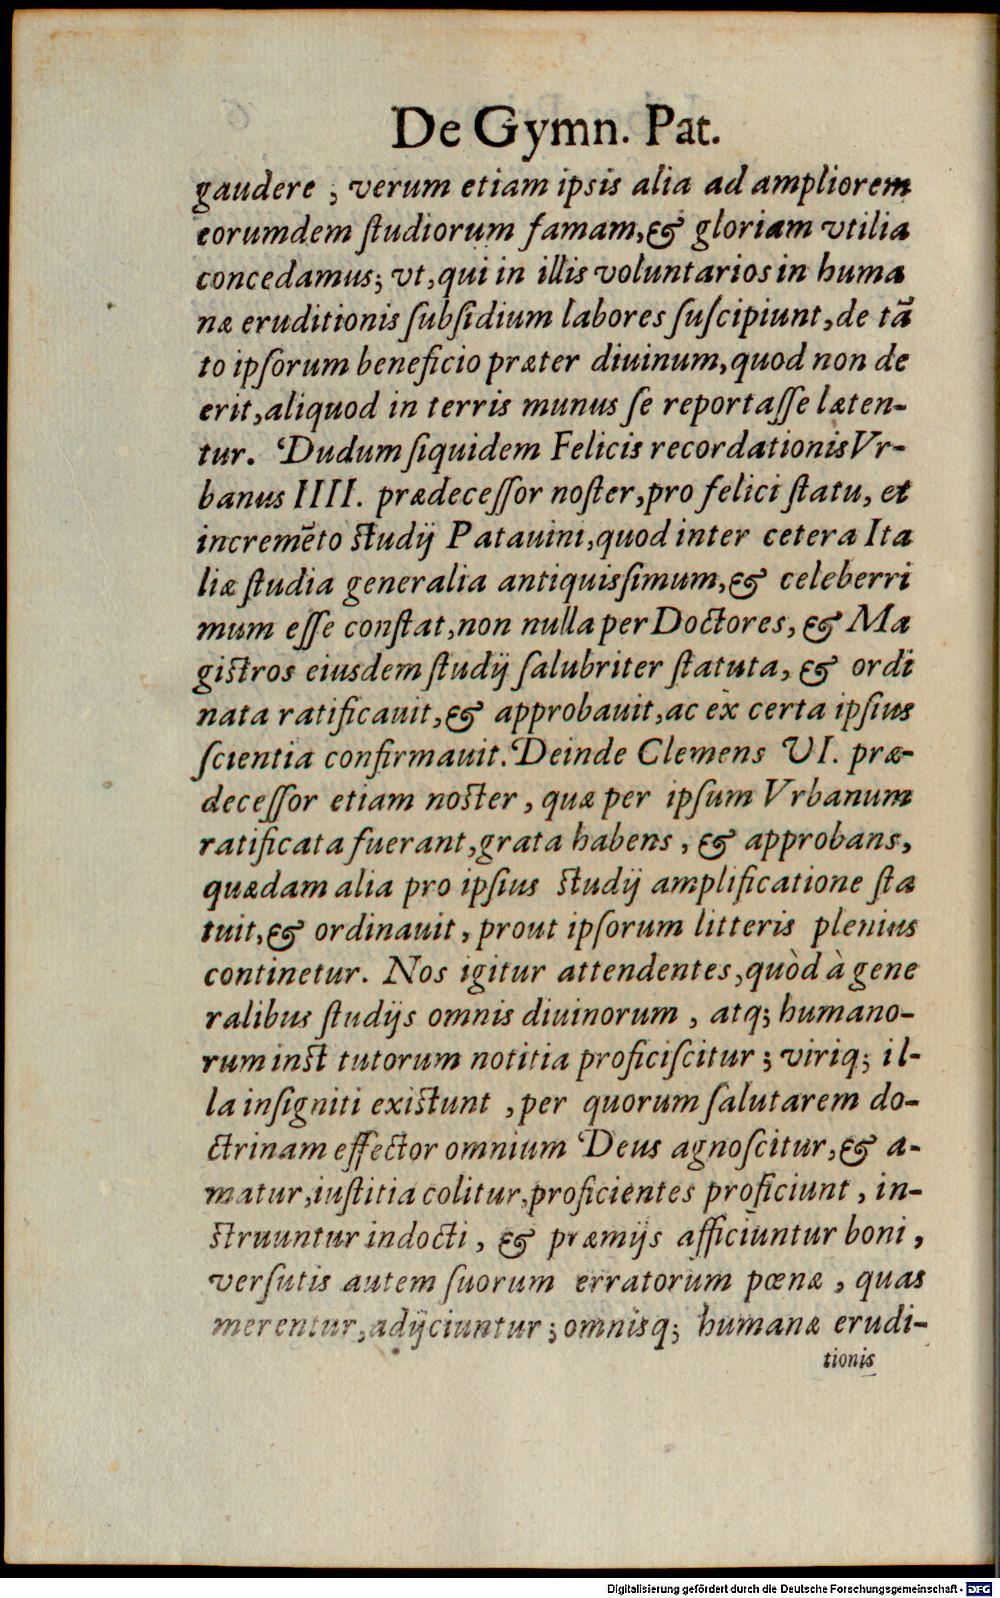 De Gymn. Pat.
gaudere ; verum etiam ipsis alia ad ampliorem
eorumdem ſtudiorum famam,& gloriam vtilia
concedamus; vt,qui in illis voluntarios in huma
næ eruditionis ſubſidium labores ſuſcipiunt,de tā
to ipſorum beneficio præter diuinum,quod non de
erit,aliquod in terris munus ſe reportaſſe læten-
tur. Dudum ſiquidem Felicis recordationis Vr-
banus IIII. prædeceſſor noſter,pro felici ſtatu, et
incremēto ſtudij Patauini,quod inter cetera Ita
liæ ſtudia generalia antiquisſimum,& celeberri
mum eſſe conſtat,non nulla per Doctores, & Ma
giſtros eiusdem ſtudij ſalubriter ſtatuta, & ordi
nata ratificauit,& approbauit,ac èx certa ipſius
ſcientia confirmauit. Deinde Clemens VI. præ-
deceſſor etiam noſter, quæ per ipſum Vrbanum
ratificata fuerant,grata habens, & approbans,
quædam alia pro ipſius ſtudij amplificatione ſta
tuit,& ordinauit, prout ipſorum litteris plenius
continetur. Nos igitur attendentes,quòd à gene
ralibus ſtudijs omnis diuinorum, atq; humano-
rum inſt tutorum notitia proficiſcitur; viriq; il-
la inſigniti exiſtunt, per quorum ſalutarem do-
ctrinam effector omnium Deus agnoſcitur,& a-
matur,iuſtitia colitur,proficientes proficiunt, in-
ſtruuntur indocti, & præmijs afficiuntur boni,
verſutis autem ſuorum erratorum pœnæ, quas
merentur,adijciuntur; omnisq; humanæ erudi-
tionis
Digitalisierung gefördert durch die Deutsche Forschungsgemeinschaft - DFG